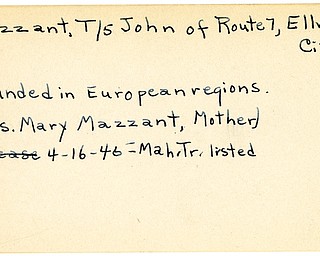 zzant, T/5 John of Route 7, Ellw
Ci
unded in European regions.
s. Mary Mazzant, Mother)
ease 4-16-46 - Mah. Tr. listed